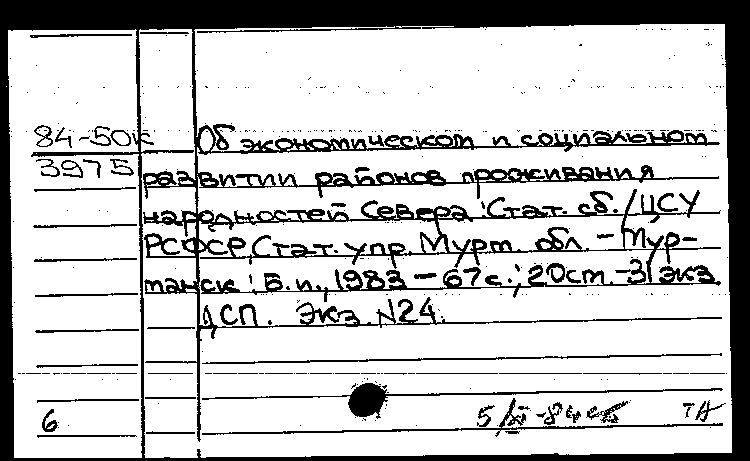 84-50к Об экономическом и социальном
3975 развитии районов проживания
народностей Севера : Стат. сб. / ЦСУ
РСФСР, Стат. упр. Мурм. обл. - Мур-
манск : Б. и., 1983 - 67 с.; 20 см. - 31 экз.
ДСП. Экз. N24.
6 5/XI-84